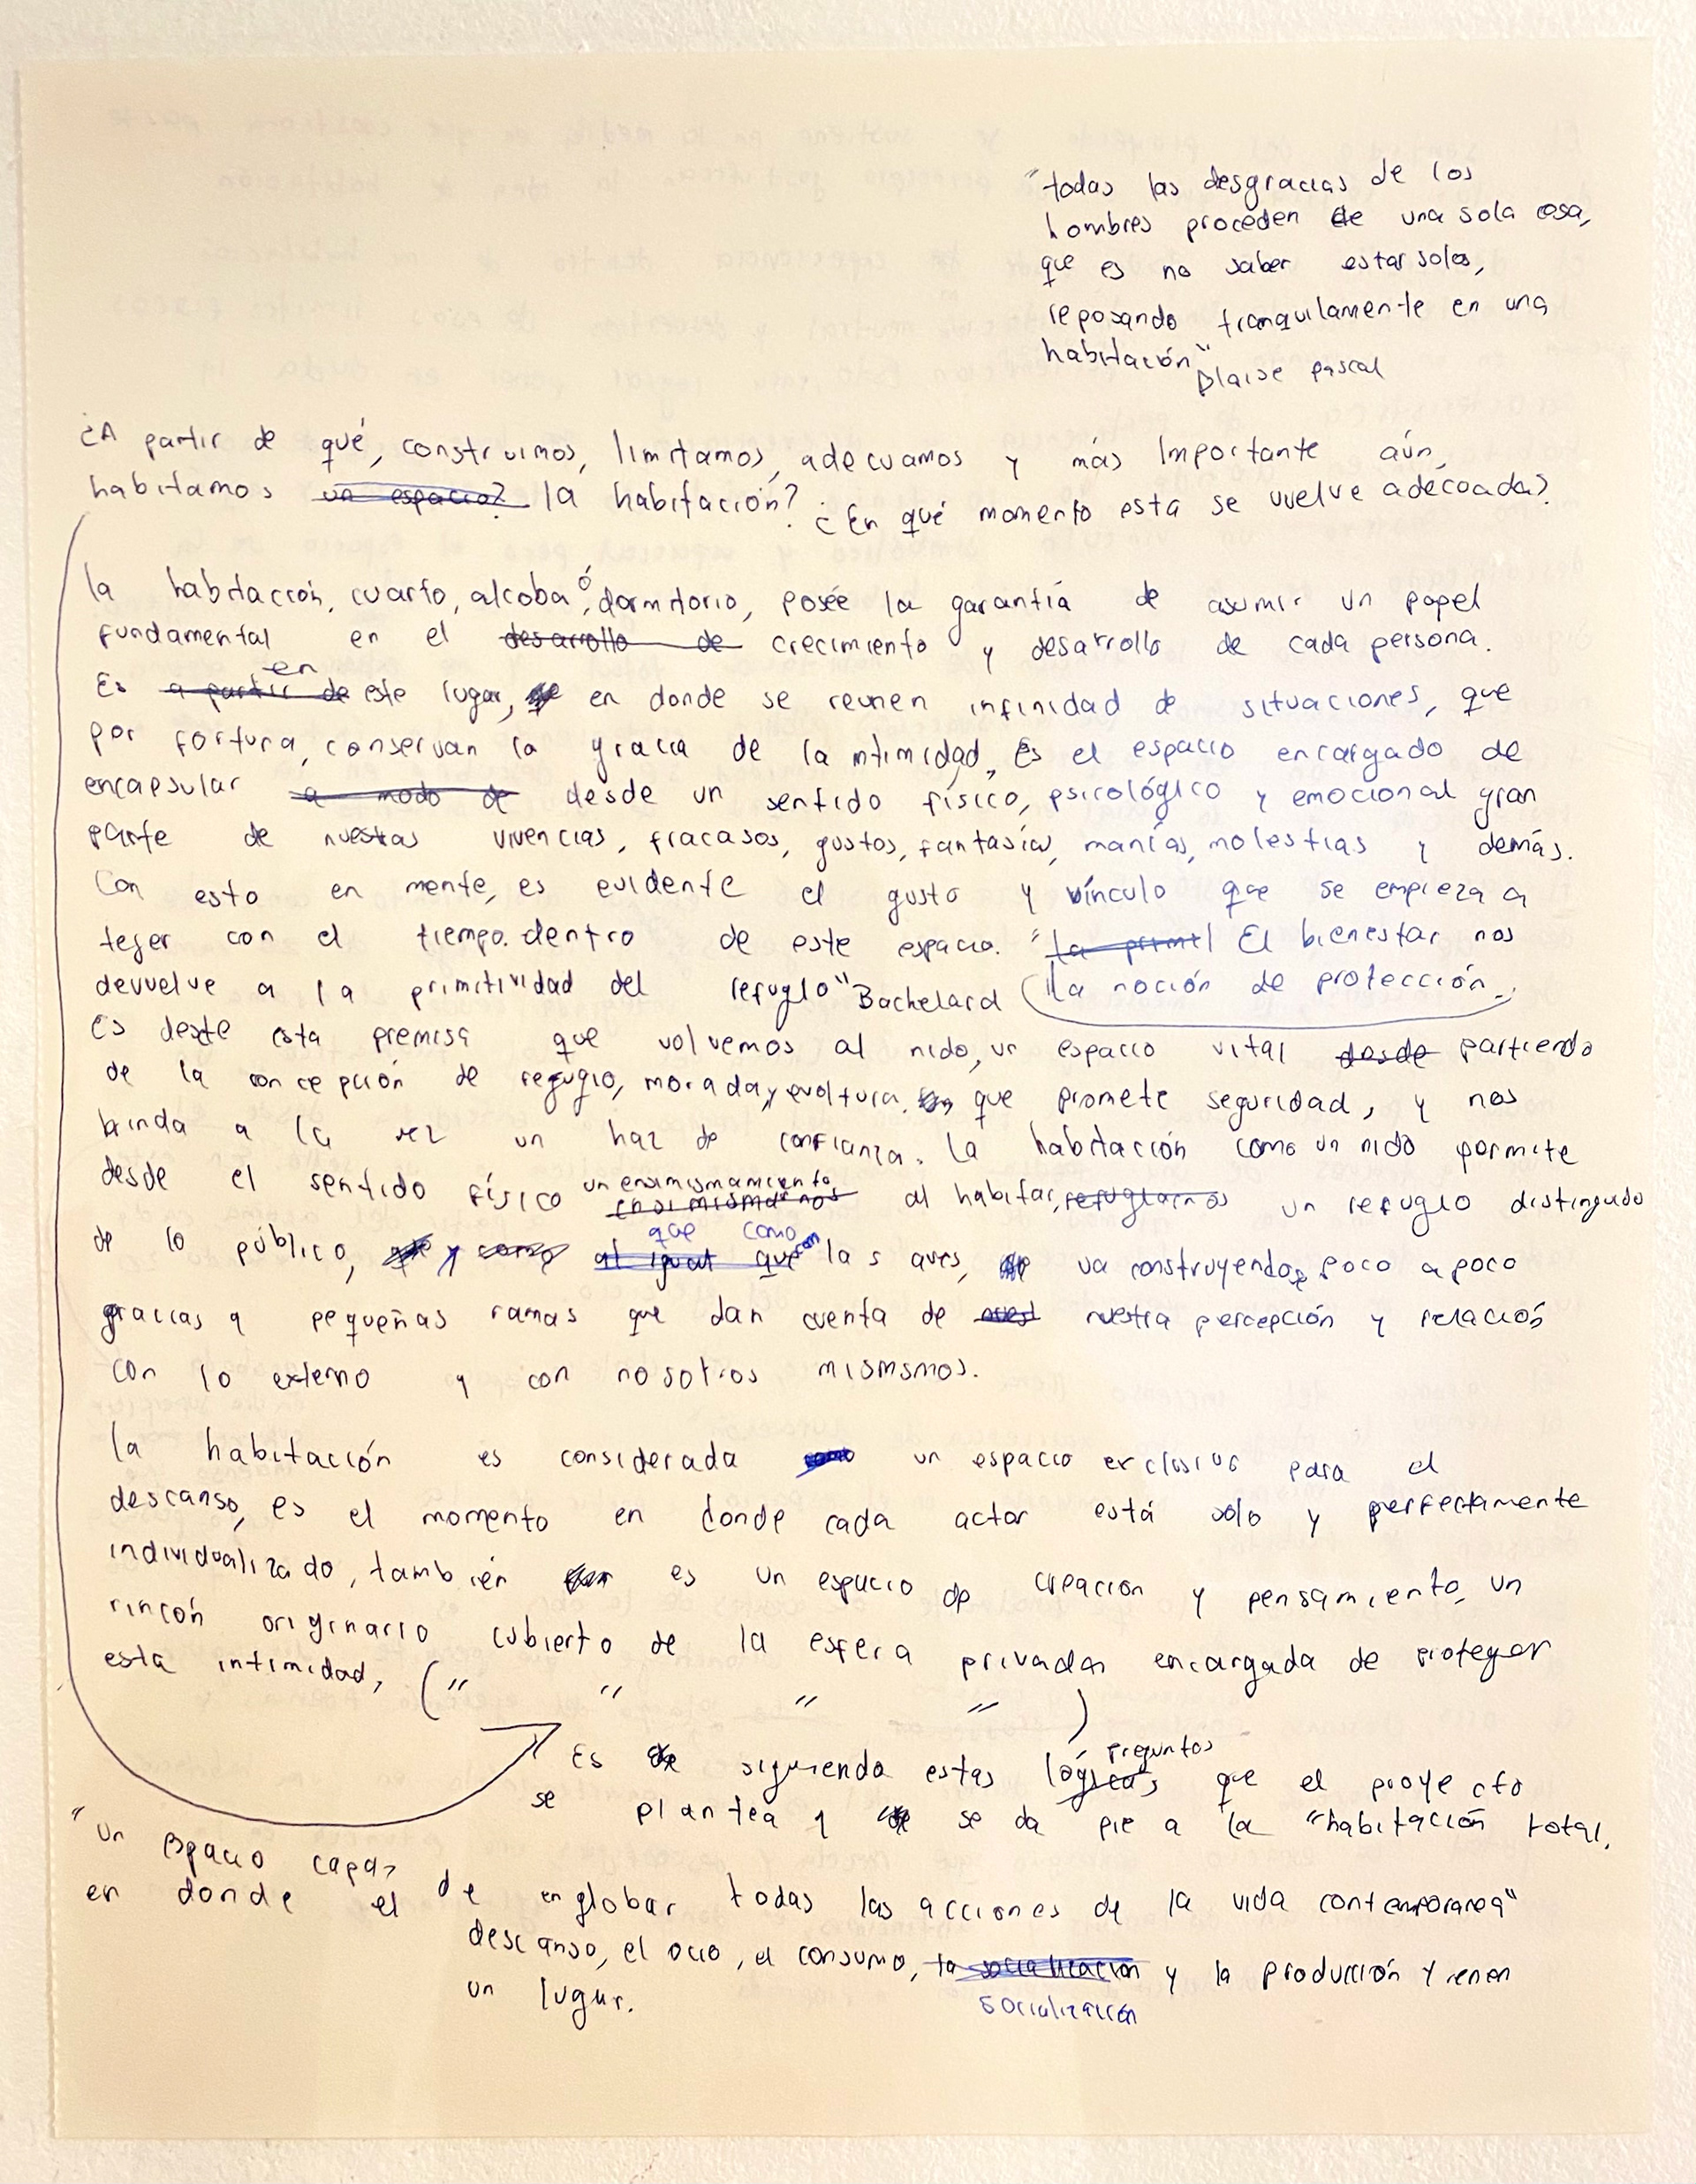 "todas las desgracias de los
hombres proceden de una sola cosa,
que es no saber estar solos,
reposando tranquilamente en una
habitación"
Blaise pascal
¿A partir de qué, construimos, limitamos, adecuamos y más importante aún,
habitamos un espacio? la habitación? ¿En qué momento esta se vuelve adecoada?
la habitación, cuarto, alcoba ó dormitorio, posée la garantía de asumir un papel
fundamental en el desarrollo de crecimiento y desarrollo de cada persona.
en
Es a partir de este lugar, en donde se reunen infinidad de situaciones, que
por fortuna, conservan la gracia de la intimidad, Es el espacio encargado de
encapsular a modo de desde un sentido físico, psicológico y emocional gran
parte de nuestras vivencias, fracasos, gustos, fantasías, manías, molestias y demás.
Con esto en mente, es evidente el gusto y vínculo que se empieza a
tejer con el tiempo. dentro de este espacio. "la primi El bienestar nos
devuelve a la primitividad del refugio" Bachelard (la noción de protección.
Es deste esta premisa que volvemos al nido, un espacio vital desde partiendo
de la concepción de refugio, morada, y que promete seguridad, y nos
brinda a la vez un haz de confianza. la habitación como un nido permite
un ensimismamiento
desde el sentido físico ensimismarnos al habitar, refugiarnos un refugio distinguido
que como con
de lo público, y como al igual que las aves, va construyendo poco a poco
gracias a pequeñas ramas que dan cuenta de nuest nuestra percepción y relación
con lo externo y con nosotros mismsmos.
la habitación es considerada como un espacio exclusivo para el
descanso, es el momento en donde cada actor está solo y perfectamente
individualizado, también es un espacio de creación y pensamiento, un
rincón originario cubierto de la esfera privada encargada de proteger
esta intimidad, (" " " " )
preguntas
Es siguiendo estas lógicas que el proyecto
se plantea y se da pie a la "habitación total,
"un espacio capaz
de englobar todas las acciones de la vida contemporanea"
en donde el
descanso, el ocio, el consumo, la socialización y la producción tienen
socialización
un lugar.